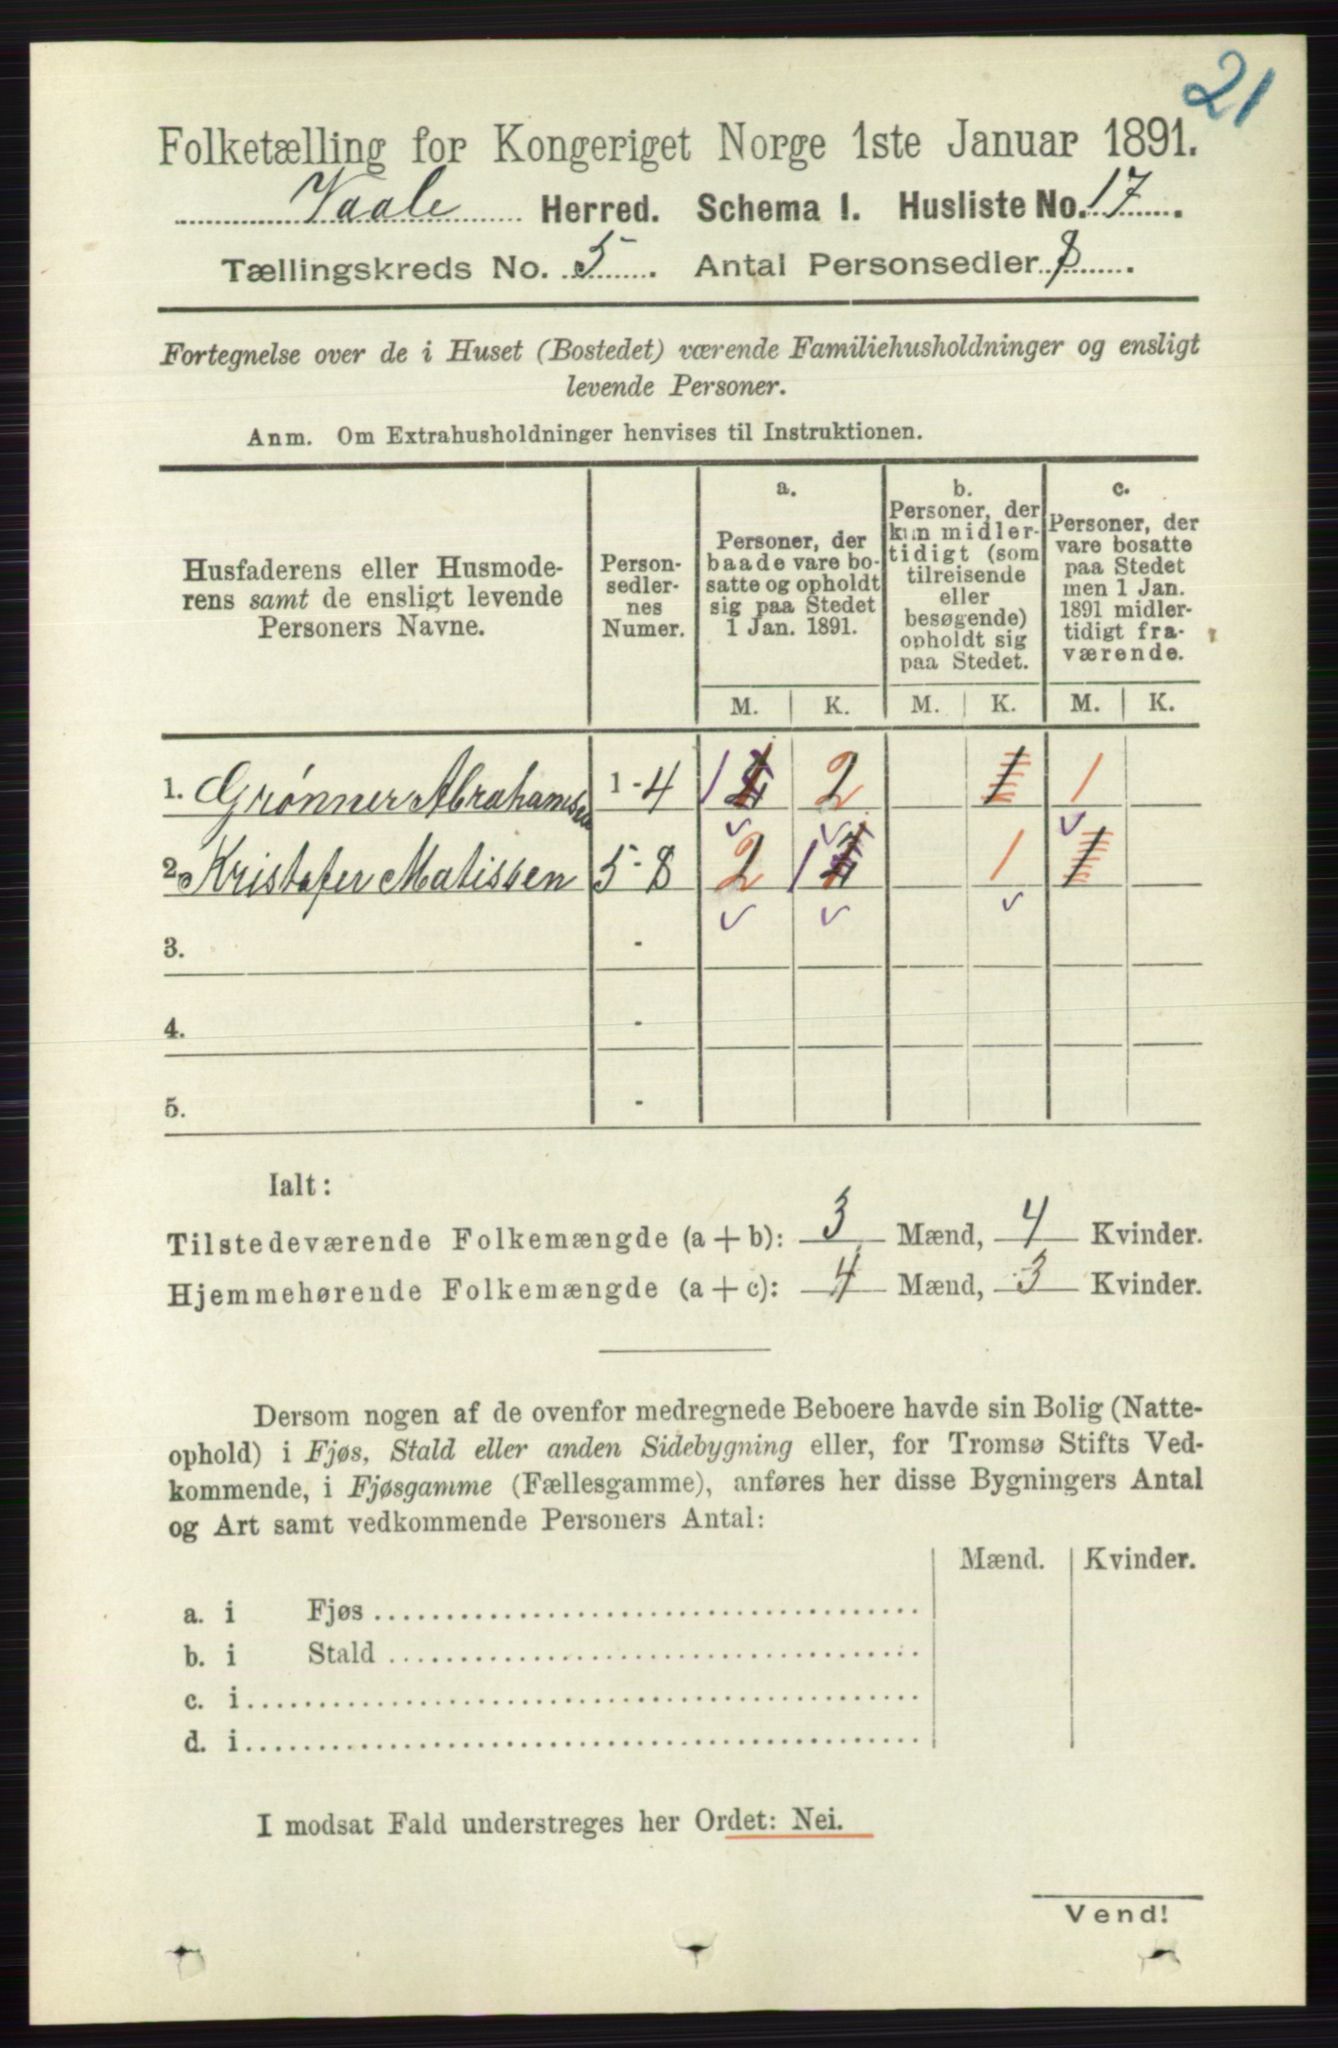 21
Folketælling for Kongeriget Norge 1ste Januar 1891.
Vaale Herred. Schema I. Husliste No. 17.
Tællingskreds No. 5. Antal Personsedler 8.
Fortegnelse over de i Huset (Bostedet) værende Familiehusholdninger og ensligt
levende Personer.
Anm. Om Extrahusholdninger henvises til Instruktionen.
Husfaderens eller Husmode-
rens samt de ensligt levende
Personers Navne.
Person-
sedler-
nes
Numer.
a.
Personer, der
baade vare bo-
satte og opholdt
sig paa Stedet
1 Jan. 1891.
b.
Personer, der
kun midler-
tidigt (som
tilreisende
eller
besøgende)
opholdt sig
paa Stedet.
c.
Personer, der
vare bosatte
paa Stedet
men 1 Jan.
1891 midler-
tidigt fra-
værende.
M. K. M. K. M. K.
1. Grønner Abrahamsen 1-4 1 2 1 1
2. Kristofer Matissen 5-8 2 1 1 1
3. -
4. -
5. -
Ialt:
Tilstedeværende Folkemængde (a + b): 3 Mænd, 4 Kvinder.
Hjemmehørende Folkemængde (a + c): 4 Mænd, 3 Kvinder.
Dersom nogen af de ovenfor medregnede Beboere havde sin Bolig (Natte-
ophold) i Fjøs, Stald eller anden Sidebygning eller, for Tromsø Stifts Ved-
kommende, i Fjøsgamme (Fællesgamme), anføres her disse Bygningers Antal
og Art samt vedkommende Personers Antal:
Mænd. Kvinder.
a. i Fjøs
b. i Stald
c. i
d. i
I modsat Fald understreges her Ordet: Nei.
Vend!